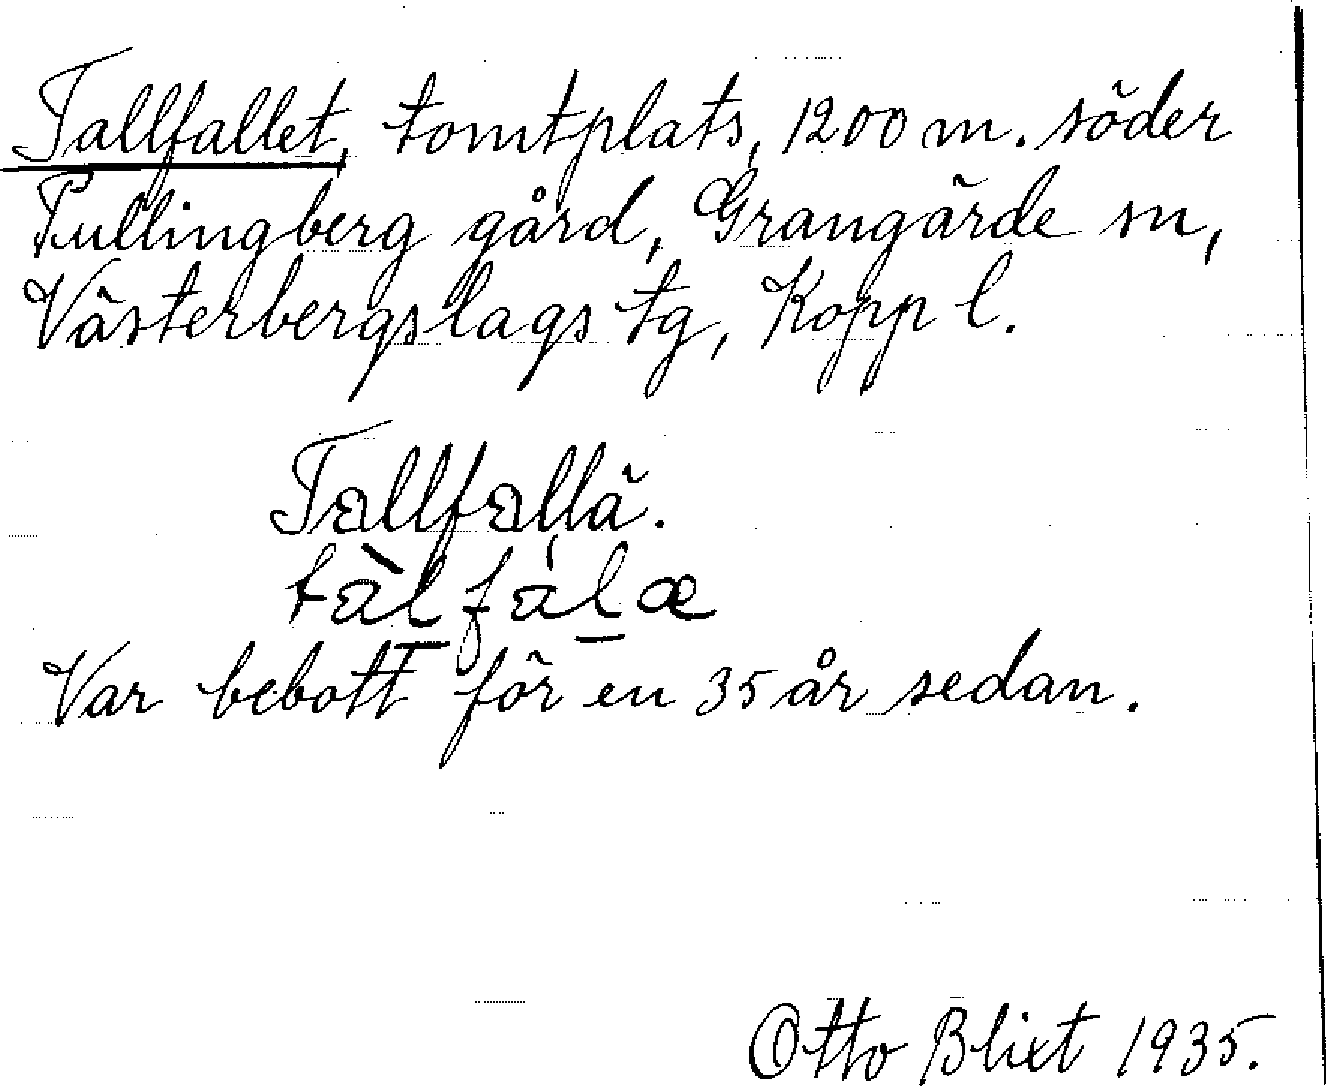 Tallfallet, tomtplats, 1200 m. söder
Pullingberg gård, Grangärde sn,
Västerbergslags tg, Kopp l.
Tallfallä.
tàl̲fál̲æ
Var bebott för en 35 år sedan.
Otto Blixt 1935.